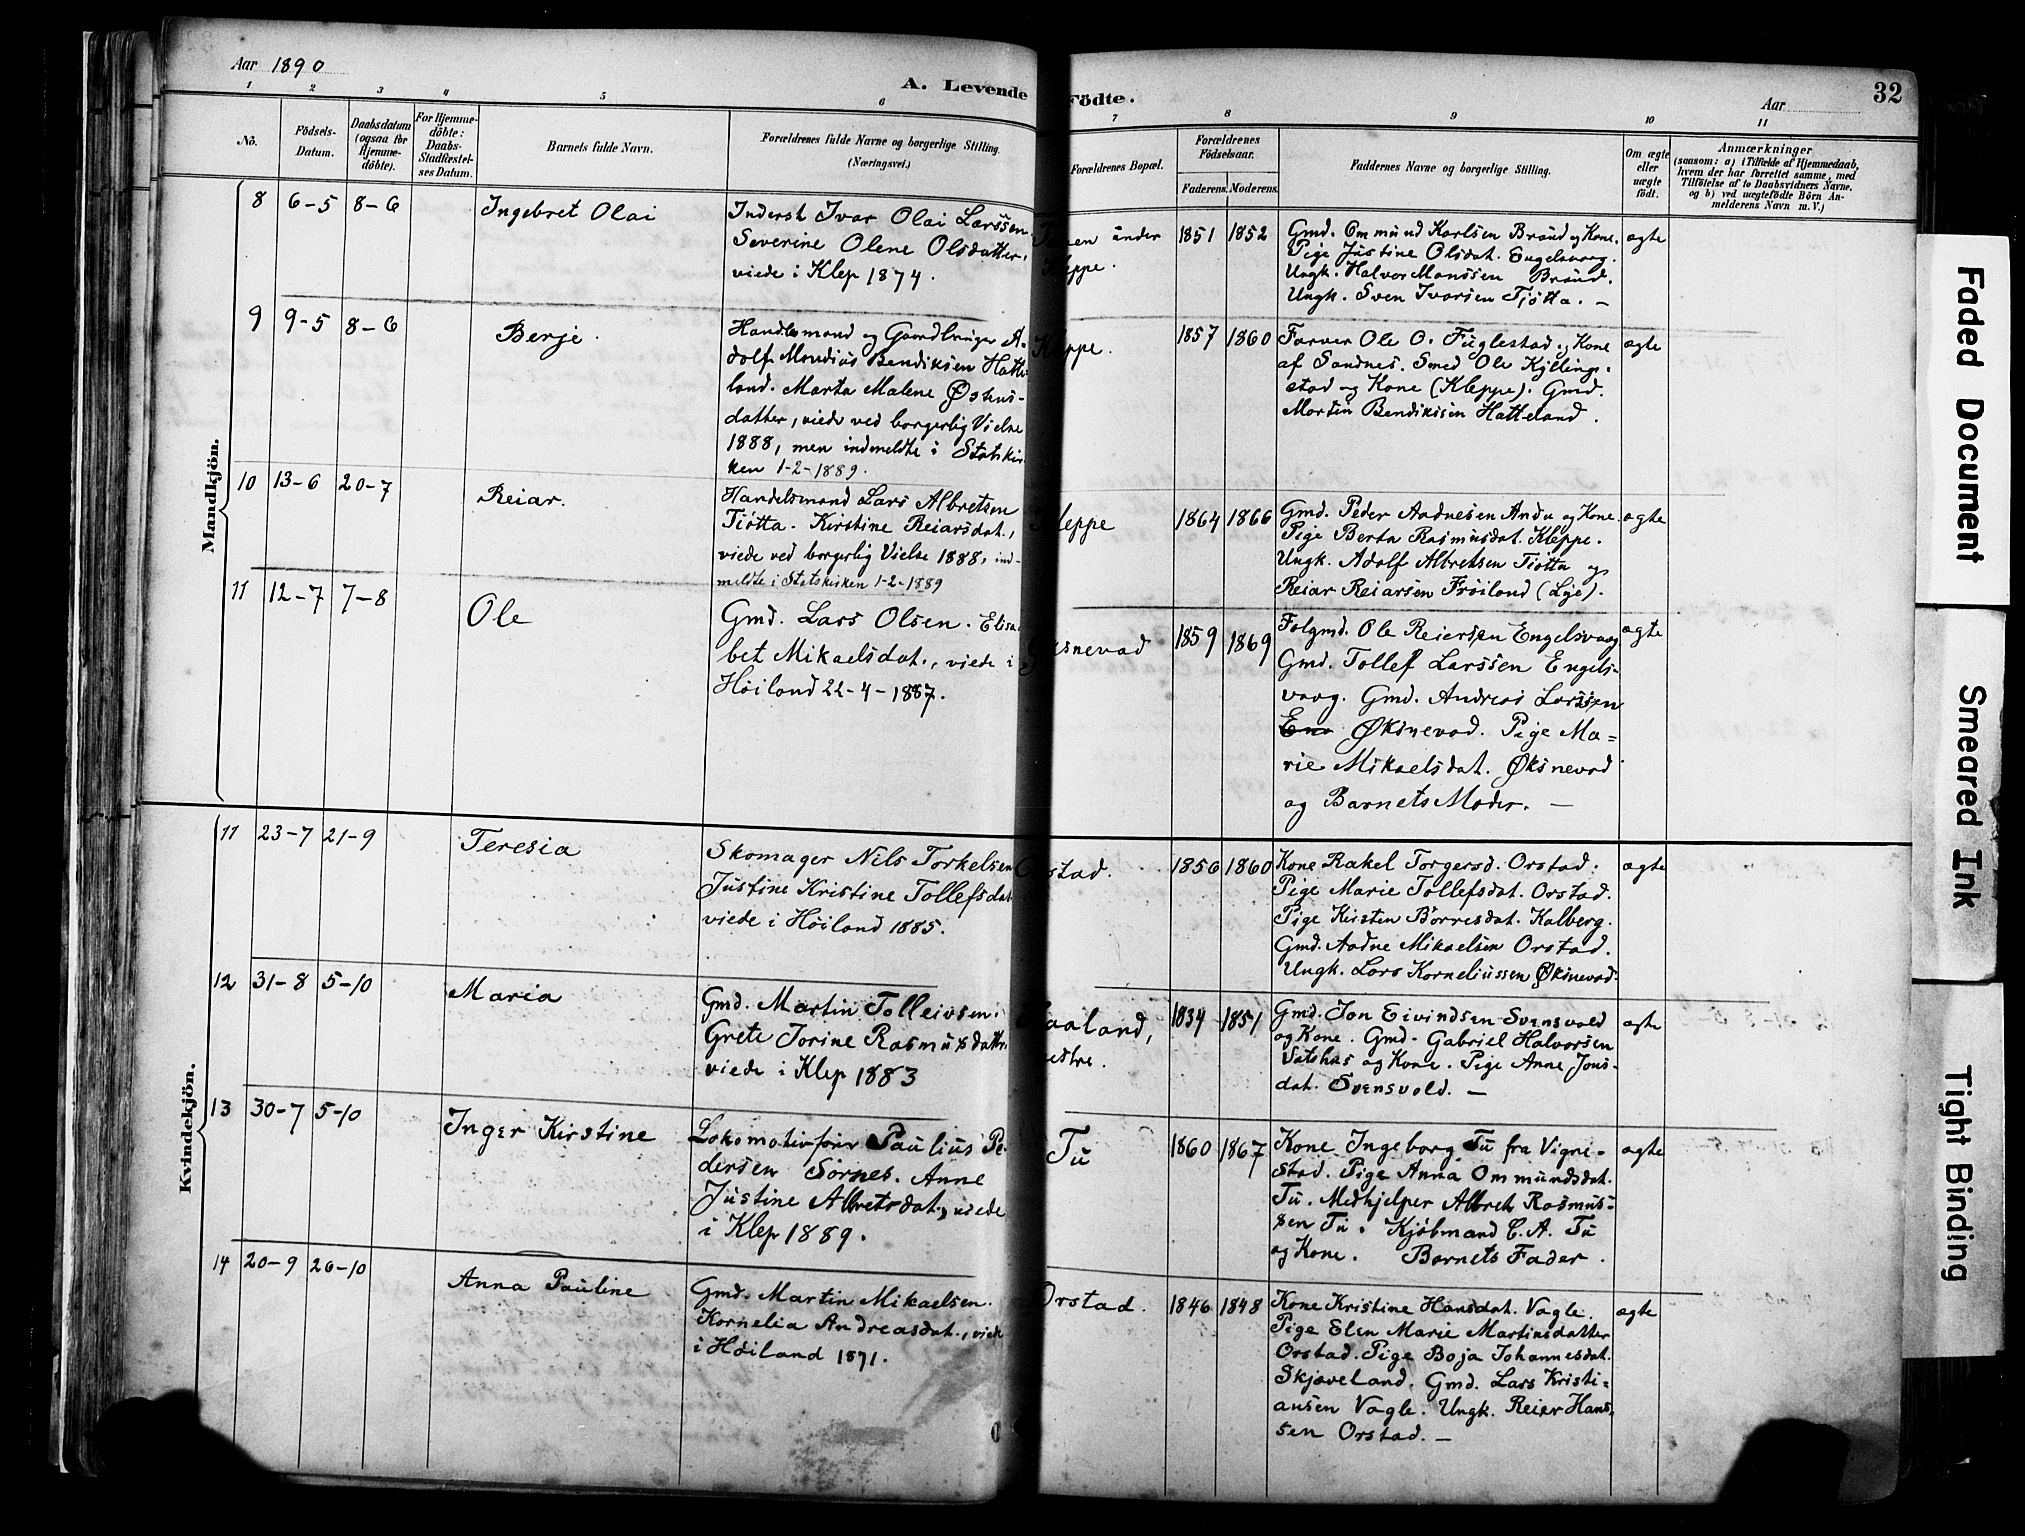 Aar 1890
A. Levende Födte.
Aar
32
1 2 3 4 5 6 7 8 9 10 11
No.
Födsels-
Datum.
Daabsdatum
(ogsaa for
Hjemme-
döbte).
For Hjemme-
döbte:
Daabs-
Stadfæstel-
ses Datum.
Barnets fulde Navn.
Forældrenes fulde Navne og borgerlige Stilling.
(Næringsvei.)
Forældrenes Bopæl.
Forældrenes
Födselsaar.
Faderens. Moderens.
Faddernes Navne og borgerlige Stilling.
Om ægte
eller
uægte
födt.
Anmærkninger
(saasom: a) i Tilfælde af Hjemmedaab,
hvem der har forrettet samme, med
Tilföielse af to Daabsvidners Navne,
og b) ved uægtefödte Börn An-
melderens Navn m. V.)
Mandkjön.
8 6-5 8-6
Ingebret Olai
Inderst Ivar Olai Larssen
Severine Olene Olsdatter,
viede i Klep 1874.
under
Kleppe.
1851 1852
Gmd. Ommund Karlsen Brund og Kone.
Pige Justine Olsdat. Engelsvaag.
Ungk. Halvor Monssen Brund.
Ungk. Sven Ivarsen Tjøtta. —
ægte
9 9-5 8-6
Berje.
Handelsmand og Gaardbruger A-
dolf Mondius Bendiksen Hatte-
land. Marta Malene Østens-
datter, viede ved borgerlig Vielse
1888, men indmeldte i Statskir-
ken 1-2-1889.
Kleppe.
1857 1860
Farver Ole O. Fuglestad og Kone
af Sandnes. Smed Ole Kyllings-
stad og Kone (Kleppe). Gmd.
Martin Bendiksen Hatteland.
ægte
10 13-6 20-7
Reiar.
Handelsmand Lars Albretsen
Tiøtta. Kirstine Reiarsdat.,
viede ved borgerlig Vielse 1888, ind-
meldte i Statskirken 1-2-1889
Kleppe
1864 1866
Gmd. Peder Aadnesen Anda og Kone.
Pige Berta Rasmusdat. Kleppe.
Ungk. Adolf Albretsen Tiøtta og
Reiar Reiarsen Frøiland (Lye).
ægte
11 12-7 7-8
Ole
Gmd. Lars Olsen. Elisa-
bet Mikaelsdat., viede i
Høiland 22-4-1887.
Øksnevad
1859 1869
Folgmd. Ole Reiersen Engelsvaag
Gmd. Tollef Larssen Engels-
vaag. Gmd. Andreas Larssen
Øksnevad. Pige Ma=
rie Mikaelsdat. Øksnevad
og Barnets Moder. —
ægte
Kvindekjön.
11 23-7 21-9
Teresia
Skomager Nils Torkelsen
Justine Kristine Tollefsdat.
viede i Høiland 1885.
Orstad.
1856 1860
Kone Rakel Torgersd. Orstad.
Pige Marie Tollefsdat. Orstad.
Pige Kirsten Børresdat. Kalberg.
Gmd. Aadne Mikaelsen Orstad.
Ungk. Lars Korneliussen Øksnevad.
ægte
12 31-8 5-10
Maria
Gmd. Martin Tolleivsen.
Grete Jorine Rasmusdatter
viede i Klep 1883
Haaland,
1834 1851
Gmd. Jon Eivindsen Svensvold
og Kone. Gmd. Gabriel Halvorsen
Vatshus og Kone. Pige Anne Jons-
dat. Svensvold. —
ægte
13 30-7 5-10
Inger Kirstine
Lokomotivfører Paulius Pe-
dersen Sørnes. Anne
Justine Albretsdat., viede
i Klep 1889.
Tu
1860 1867
Kone Ingeborg Tu fra Vigre-
stad. Pige Anna Ommundsdat.
Tu. Medhjelper Albret Rasmus-
sen Tu. Kjøbmand C. A. Tu
og Kone. Barnets Fader.
ægte
14 20-9 26-10
Anna Pauline
Gmd. Martin Mikaelsen.
Kornelia Andreasdat., viede
i Høiland 1871.
Orstad.
1846 1848
Kone Kristine Hansdat. Vagle.
Pige Elen Marie Martinsdatter
Orstad. Pige Boja Johannesdat.
Skjæveland. Gmd. Lars Kristi=
ansen Vagle. Ungk. Reier Hans-
sen Orstad. —
ægte
Faded Document
Smeared Ink
Tight Binding